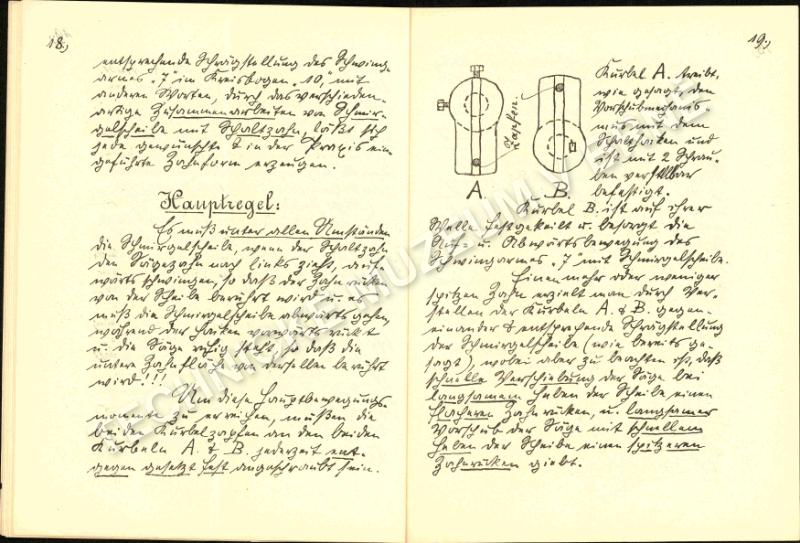 18.)
entsprechende Schrägstellung des Schwing-
armes „7" im Kreisbogen „10," mit
anderen Worten, durch das verschieden-
artige Zusammenarbeiten von Schmir-
gelscheibe mit Schaltzahn, läßt sich
jede gewünschte & in der Praxis ein-
geführte Zahnform erzeugen.
Hauptregel:
Es muß unter allen Umständen
die Schmirgelscheibe, wenn der Schaltzahn
den Sägezahn nach links zieht, auf-
wärts schwingen, so daß der Zahnrücken
von der Scheibe berührt wird u. es
muß die Schmirgelscheibe abwärts gehen,
während der Haken vorwärts rückt
u. die Säge ruhig steht, so daß die
untere Zahnfläche von derselben berührt
wird!!!
Um diese Hauptbewegungs-
momente zu erreichen, müßen die
beiden Kurbelzapfen an den beiden
Kurbeln A. & B. jederzeit ent-
gegen gesetzt fest angeschraubt sein.
19.)
Zapfen.
A
B.
Kurbel A. treibt,
wie gesagt, den
Vorschubmechanis-
mus mit dem
Schalthaken und
ist mit 2 Schrau-
ben verstellbar
befestigt.
Kurbel B. ist auf ihrer
Welle festgekeilt u. besorgt die
Auf- u. Abwärtsbewegung des
Schwingarmes „7" mit Schmirgelscheibe.
Einen mehr oder weniger
spitzen Zahn erzielt man durch Ver-
stellen der Kurbeln A. & B. gegen-
einander & entsprechende Schrägstellung
der Schmirgelscheibe (wie bereits ge-
sagt), wobei aber zu beachten ist, daß
schnelle Verschiebung der Säge bei
langsamem Heben der Scheibe einen
flacheren Zahnrücken, u. langsamer
Vorschub der Säge mit schnellem
Heben der Scheibe einen spitzeren
Zahnrücken giebt.
TECHNICKÉ MUZEUM V BRNĚ